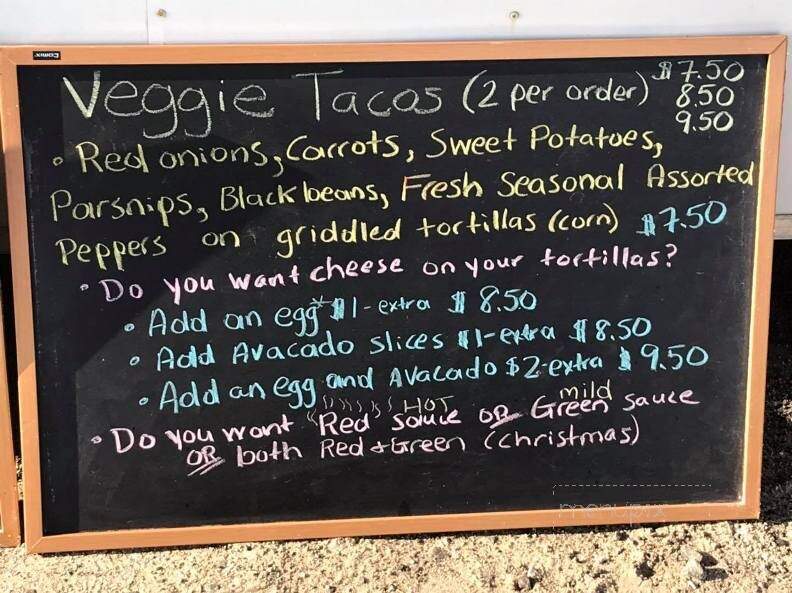 Comix
Veggie Tacos (2 per order) $7.50
8.50
9.50
• Red onions, Carrots, Sweet Potatoes,
Parsnips, Black beans, Fresh Seasonal Assorted
Peppers on griddled tortillas (corn) $7.50
• Do you want cheese on your tortillas?
• Add an egg* $1-extra $8.50
• Add Avacado slices $1-extra $8.50
• Add an egg and Avacado $2-extra $9.50
HOT mild
• Do you want "Red" sauce OR Green sauce
OR both Red + Green (christmas)
menupix